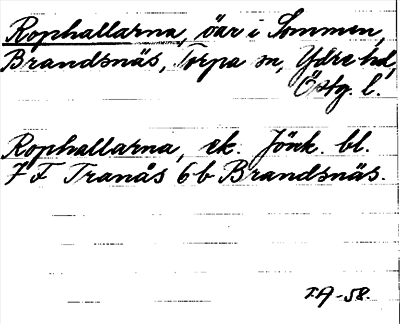 Rophallarna, öar i Sommen,
Brandsnäs, Torpa sn, Ydre hd,
Östg. l.
Rophallarna, ek. Jönk. bl.
7 F Tranås 6 b Brandsnäs.
I.A-58.